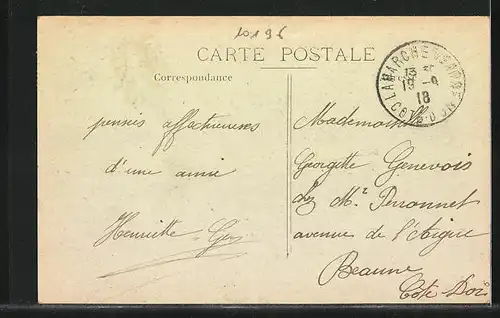 10196
CARTE POSTALE
Correspondance
pensées affectueuses
d'une amie
Henriette
LAMARCHE
13
19 -9
18
COTE-D'OR
Mademoiselle
Georgette Genevois
chez Mr Perronnet
avenue de l'Aigue
Beaune
Cote Dor